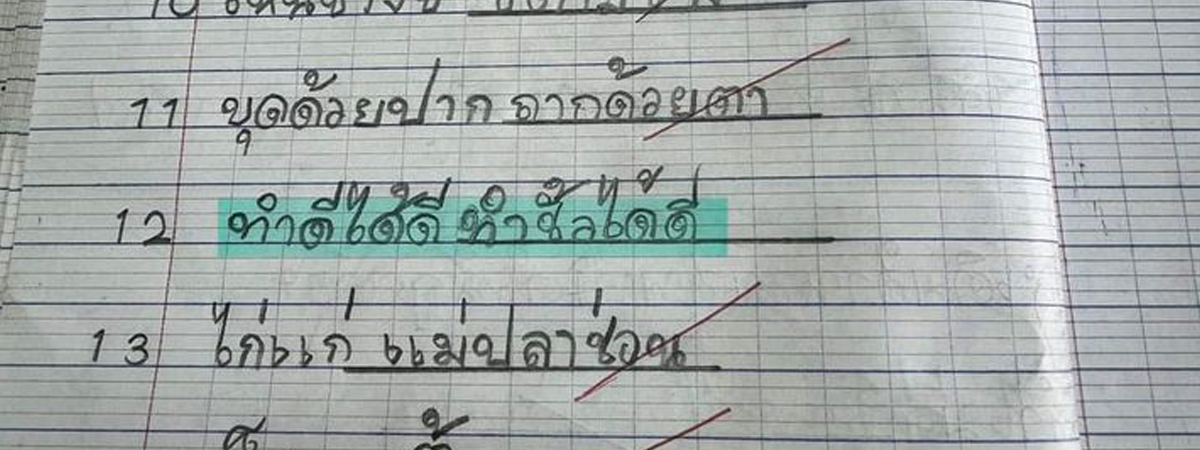 11 ขุดด้วยปาก ถากด้วยตา
12 ทำดีได้ดี ทำชั่วได้ดี
13 ไก่แก่ แม่ปลาช่อน